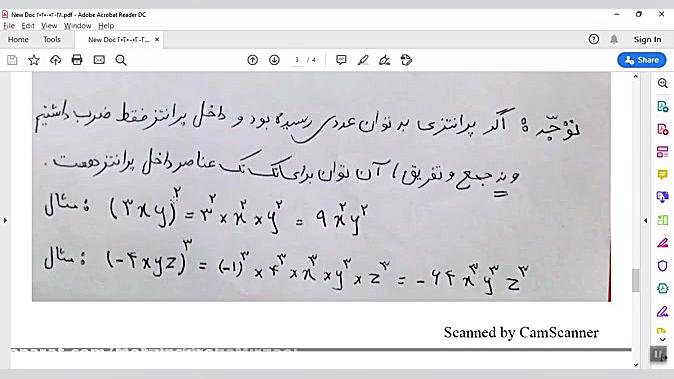 New Doc ۲۰۲۰-۰۲-۲۸.pdf - Adobe Acrobat Reader DC
File Edit View Window Help
Home Tools New Doc ۲۰۲۰-۰۲-... × Sign In
3 / 4 Share
توجّه : اگر پرانتزی به توان عددی رسیده بود و داخل پرانتز فقط ضرب داشتیم
و نه جمع و تفریق، آن توان برای تک تک عناصر داخل پرانتز هست.
مثال : (۳xy)^۲ = ۳^۲ × x^۲ × y^۲ = ۹x^۲y^۲
مثال : (-۴xyz)^۳ = (-۱)^۳ × ۴^۳ × x^۳ × y^۳ × z^۳ = -۶۴x^۳y^۳z^۳
Scanned by CamScanner